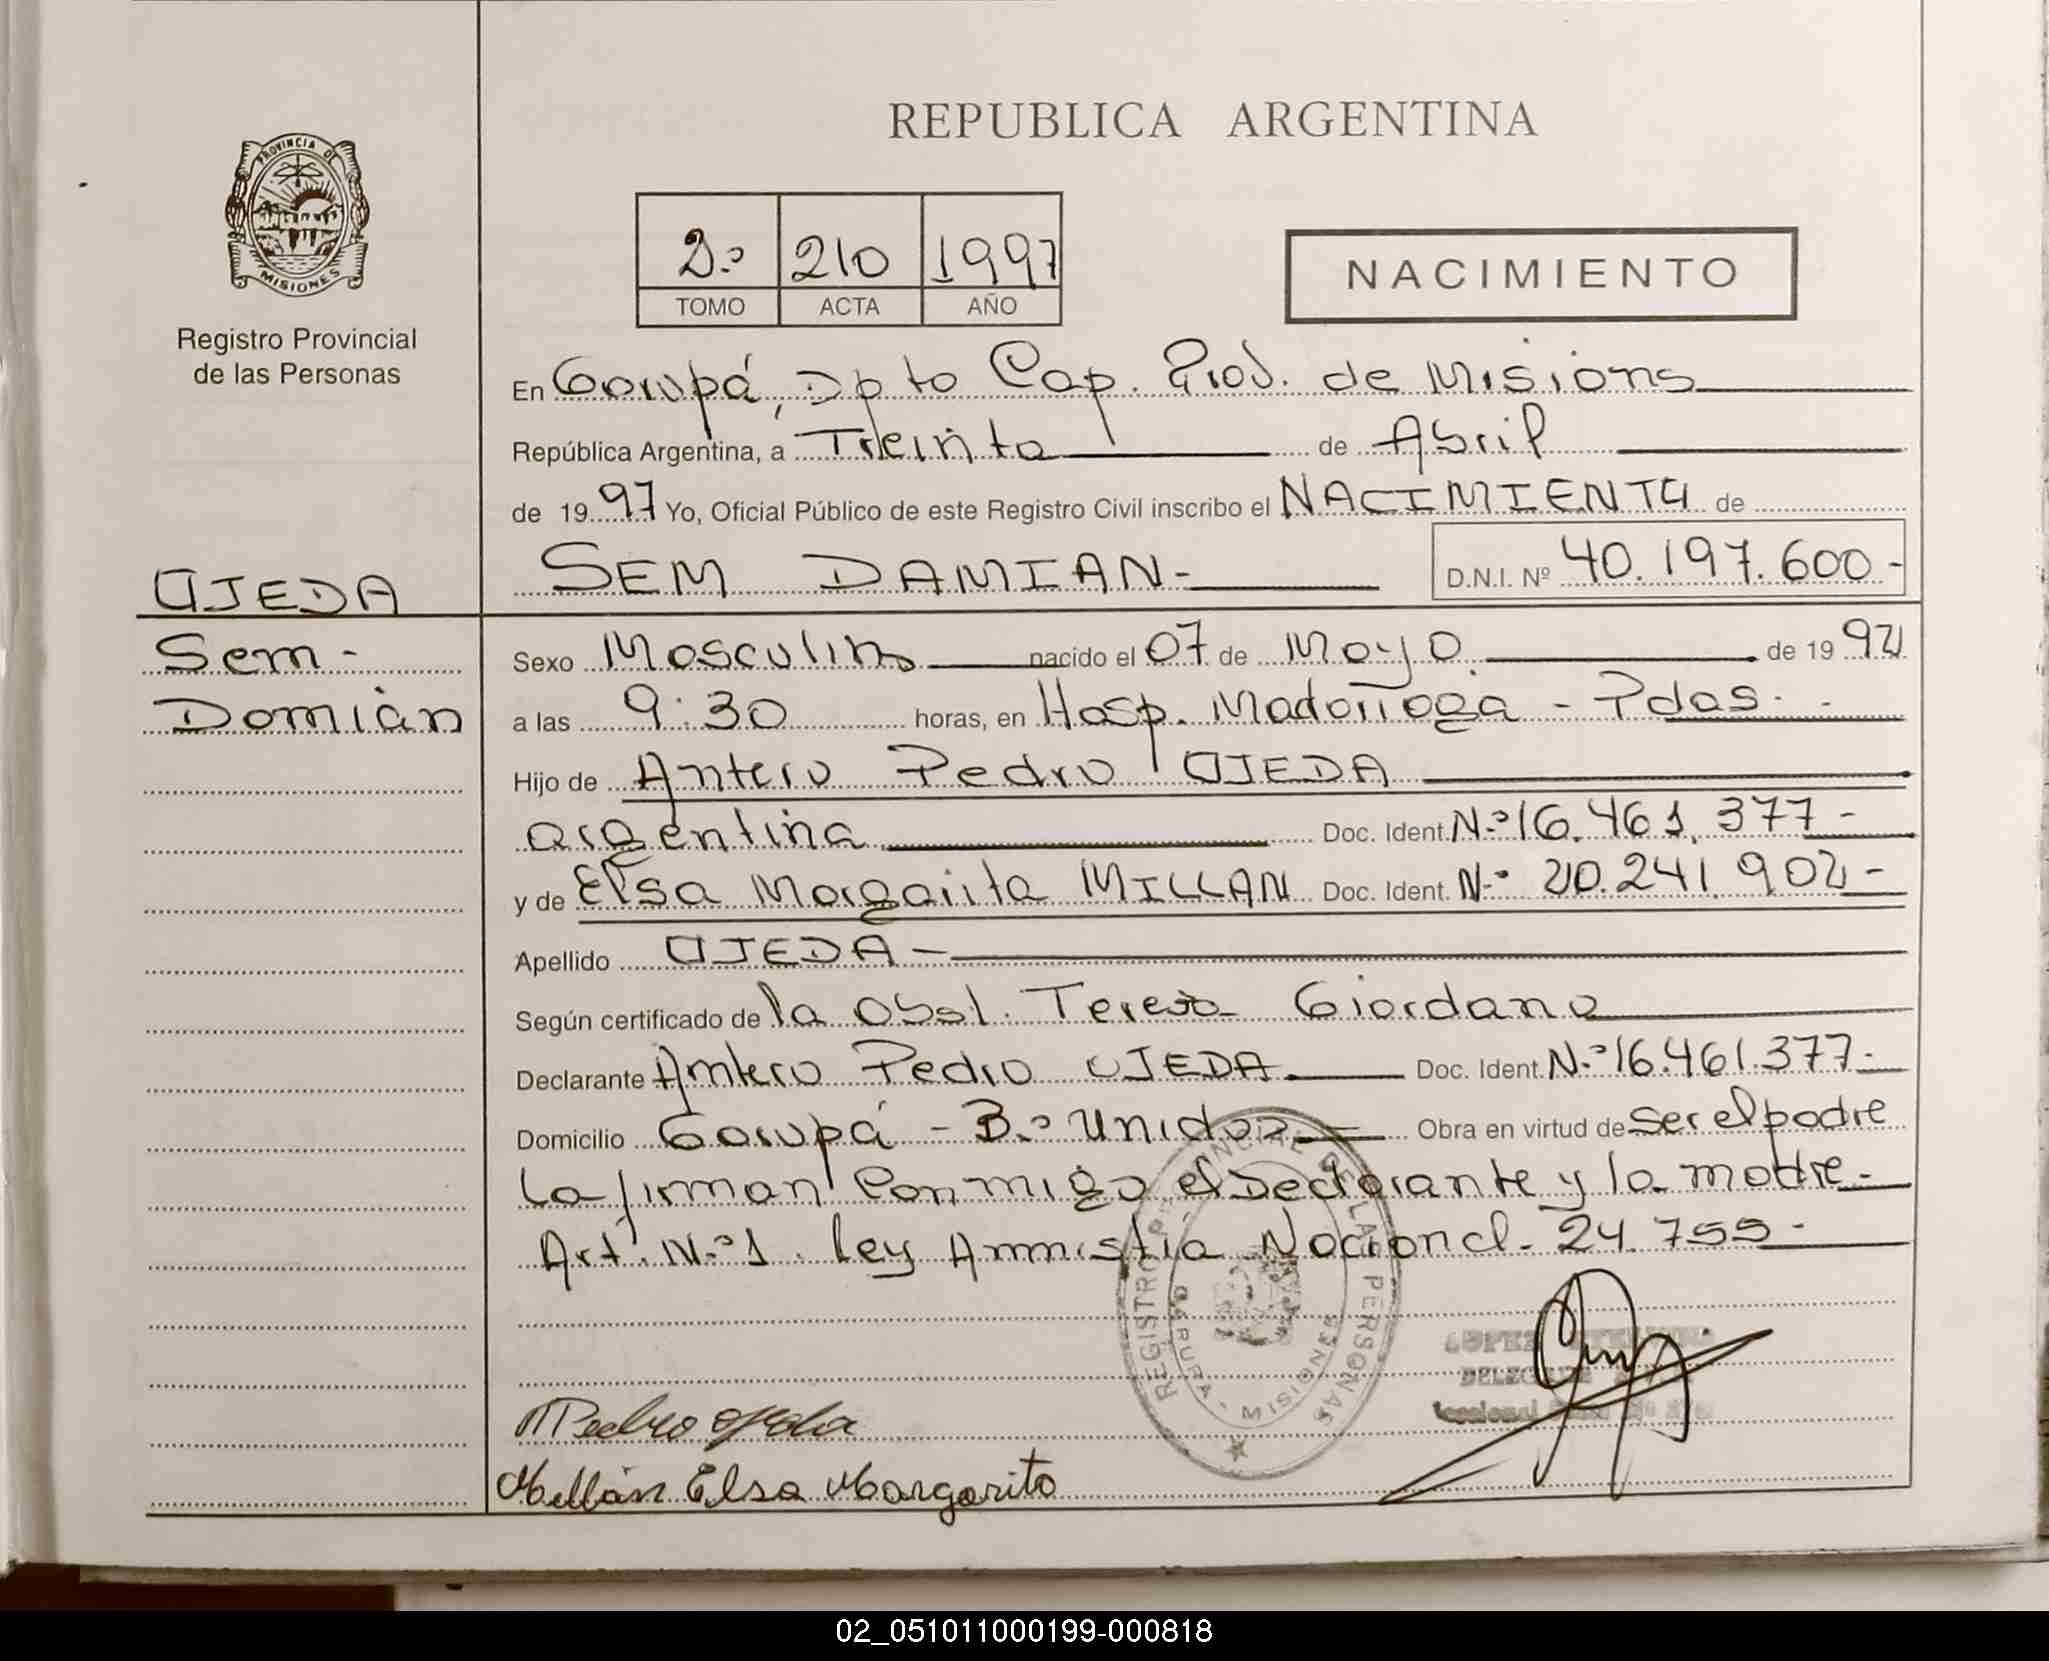 REPUBLICA ARGENTINA
PROVINCIA DE
MISIONES
Registro Provincial
de las Personas
2.º 210 1997
TOMO ACTA AÑO
NACIMIENTO
En Garupá, Dpto Cap. Prov. de Misions
República Argentina, a Treinta de Abril
de 1997 Yo, Oficial Público de este Registro Civil inscribo el NACIMIENTO de
SEM DAMIAN- D.N.I. Nº 40.197.600-
OJEDA
Sem-
Damián
Sexo Masculino nacido el 07 de Mayo de 1992
a las 9:30 horas, en Hosp. Madariaga - Pdas. -
Hijo de Antero Pedro OJEDA
argentina Doc. Ident. N.º 16.461.377-
y de Elsa Margarita MILLAN Doc. Ident. N.º 20.241.902-
Apellido OJEDA-
Según certificado de la Obst. Teresa Giordano
Declarante Antero Pedro OJEDA Doc. Ident. N.º 16.461.377-
Domicilio Garupá - B.º Unidos Obra en virtud de ser el padre
La firman conmigo el Declarante y la madre-
Art. N.º 1. Ley Amnistia Nacional. 24.755-
REGISTRO PROVINCIAL DE LAS PERSONAS
GARUPA - MISIONES
LOPEZ
Pedro Ojeda
Millán Elsa Margarita
02_051011000199-000818